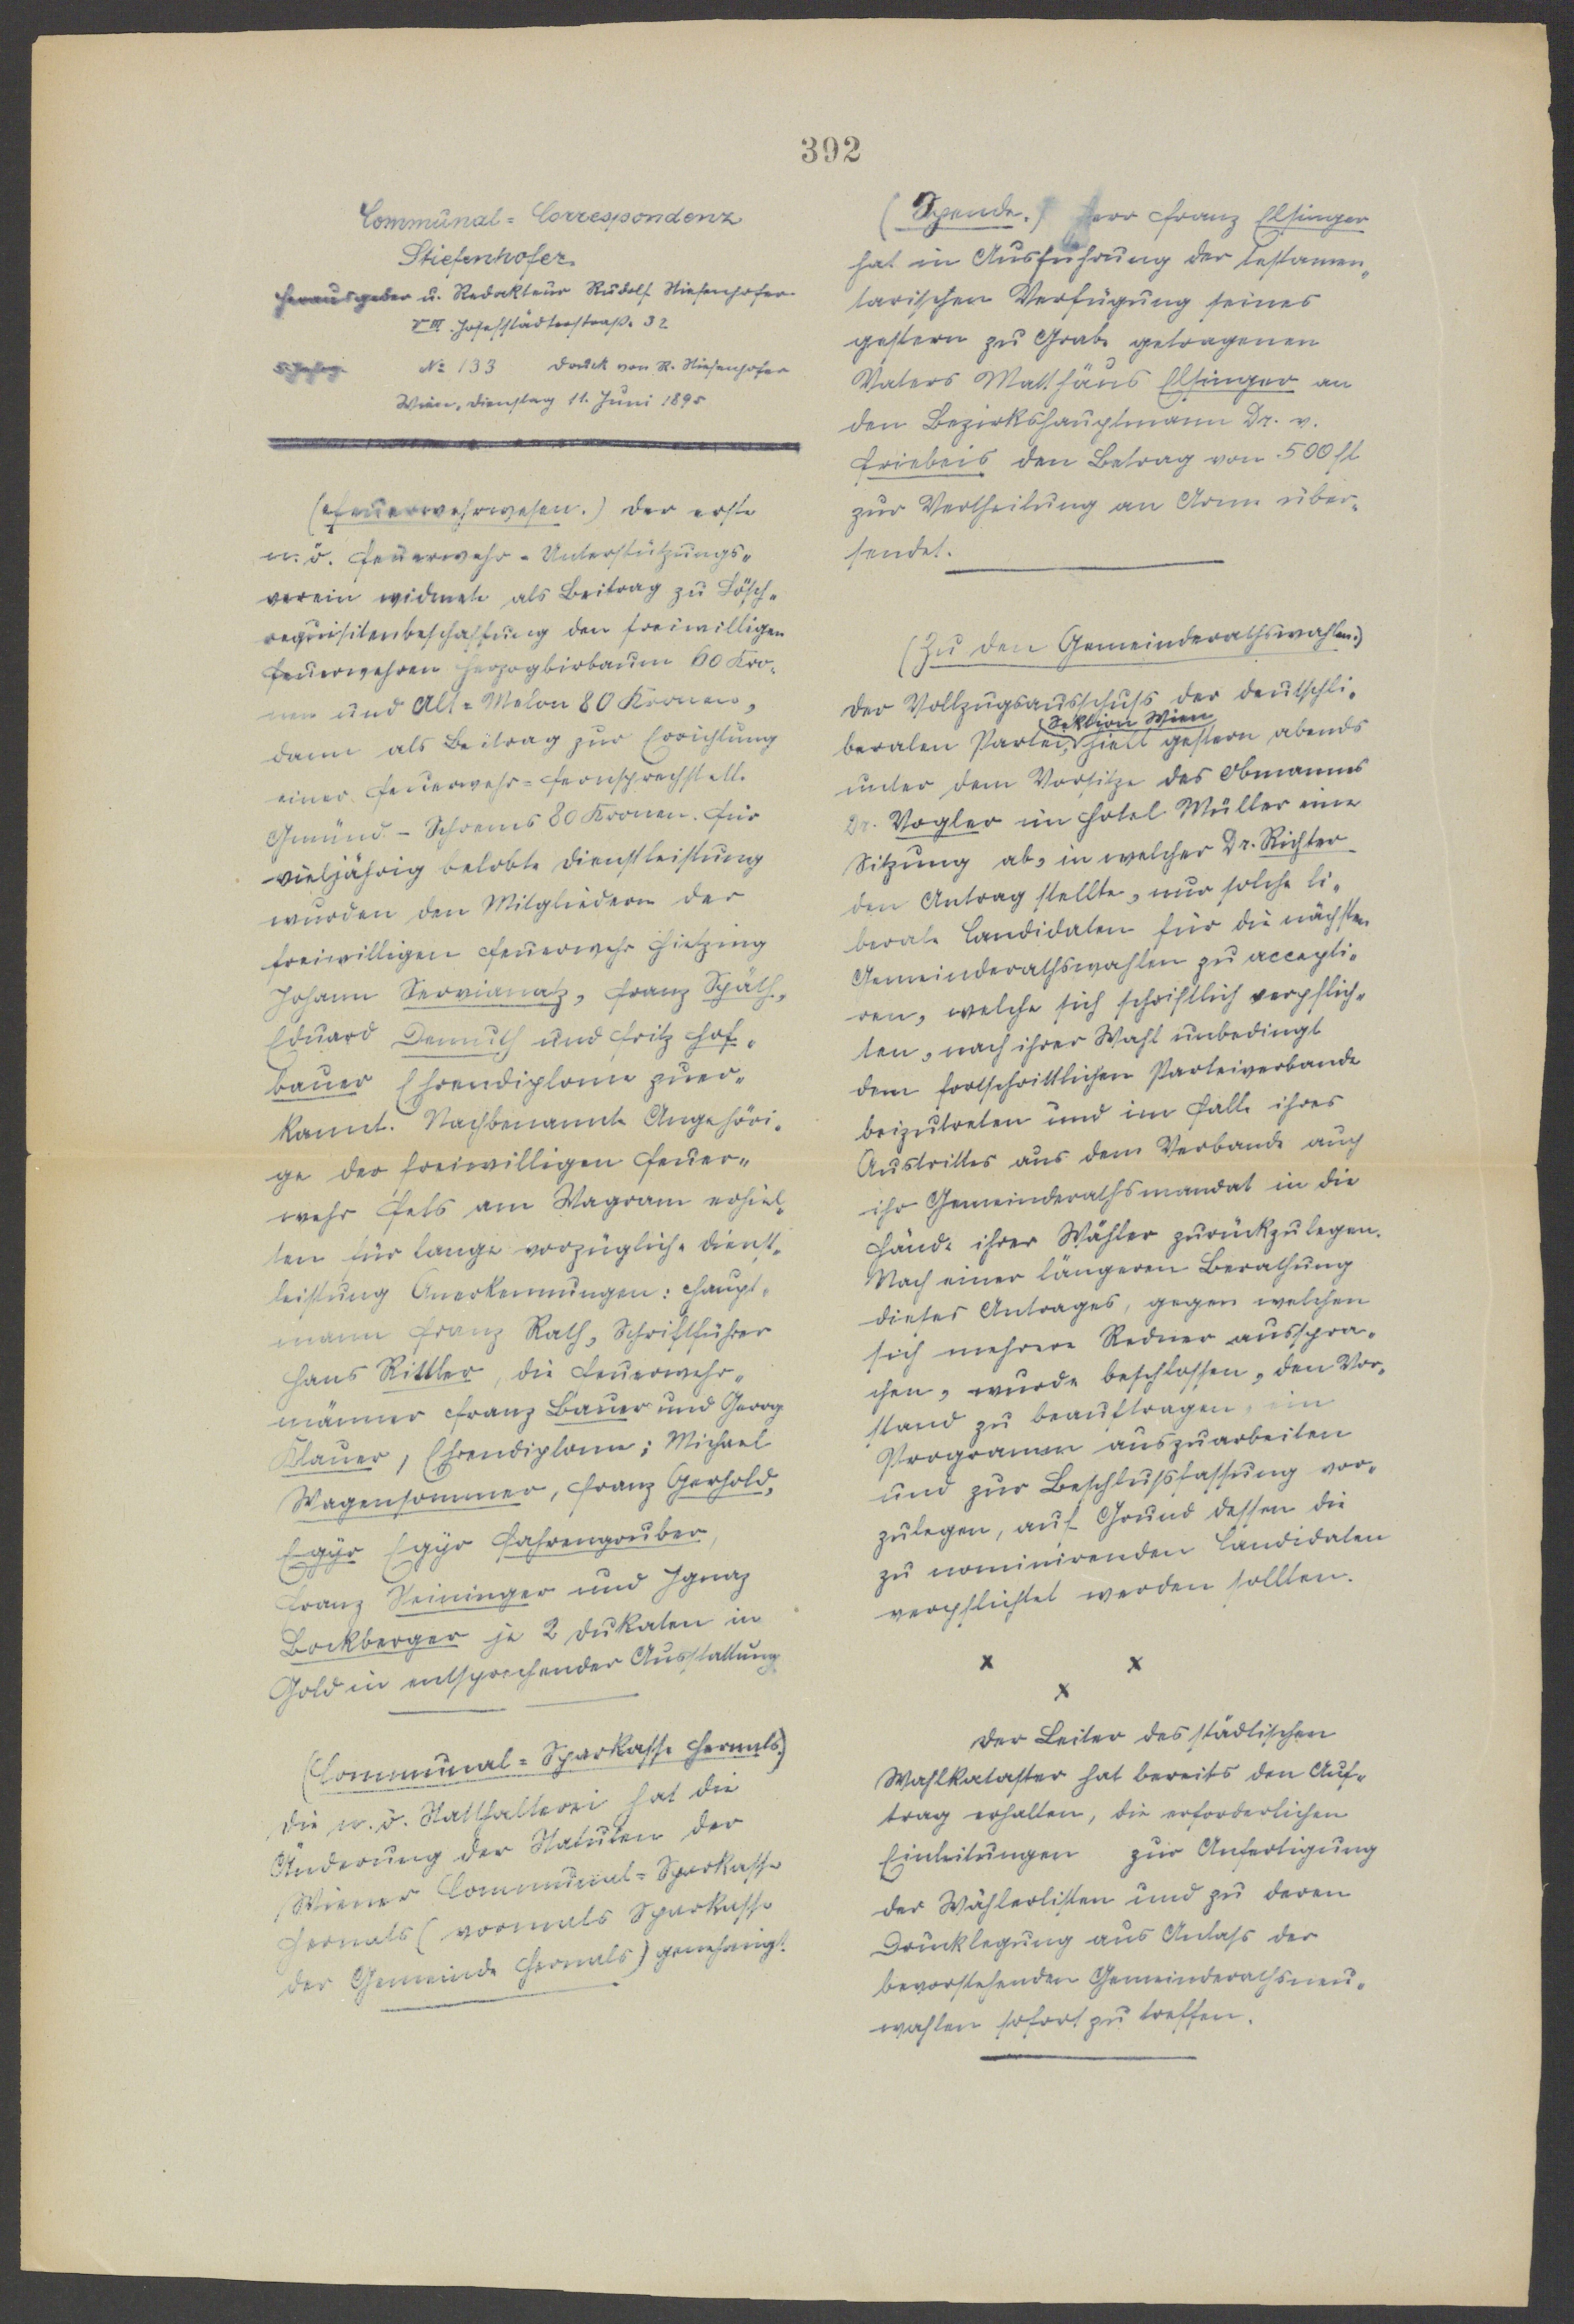 392
Communal=Correspondenz
Stiefenhofer.
Herausgeber u. Redakteur Rudolf Stiefenhofer.
VIII. Josefstädterstraße 32
5. Jahrg. No 133 Druck von R. Stiefenhofer
Wien, Dienstag 11. Juni 1895
(Feuerwehrwesen.) Der erste
n. ö. Feuerwehr-Unterstützungs-
verein widmete als Beitrag zu Lösch-
requisitenbeschaffung den freiwilligen
Feuerwehren Herzogbirbaum 60 Kro-
nen und Alt=Melon 80 Kronen,
dann als Beitrag zur Errichtung
einer Feuerwehr=Fernsprechstelle
Gmünd-Schrems 80 Kronen. Für
vieljährig belobte Dienstleistung
wurden den Mitgliedern der
freiwilligen Feuerwehr Hietzing
Johann Servianatz, Franz Späth,
Eduard Demuth und Fritz Hof-
bauer Ehrendiplome zuer-
kannt. Nachbenannte Angehöri-
ge der freiwilligen Feuer-
wehr Fels am Wagram erhiel-
ten für lange vorzügliche Dienst-
leistung Anerkennungen: Haupt-
mann Franz Rath, Schriftführer
Hans Rittler, die Feuerwehr-
männer Franz Bauer und Georg
Klauer, Ehrendiplome; Michael
Wagensommer, Franz Gerhold,
Egÿr Egÿr Fahrengruber,
Franz Steininger und Ignaz
Bockberger je 2 Dukaten in
Gold in entsprechender Ausstattung
(Communal=Sparkasse Hernals.)
Die n. ö. Statthalterei hat die
Änderung der Statuten der
Wiener Communal=Sparkasse
Hernals (vormals Sparkasse
der Gemeinde Hernals) genehmigt.
(Spende.) Herr Franz Elsinger
hat in Ausführung der testamen-
tarischen Verfügung seines
gestern zu Grabe getragenen
Vaters Matthäus Elsinger an
den Bezirkshauptmann Dr. v.
Friebeis den Betrag von 500 fl
zur Vertheilung an Arme über-
sendet.
(Zu den Gemeinderathswahlen.)
Der Vollzugsausschuß der deutschli-
beralen Partei, (Sektion Wien) hielt gestern abends
unter dem Vorsitze des Obmannes
Dr. Vogler im Hotel Müller eine
Sitzung ab, in welcher Dr. Richter
den Antrag stellte, nur solche li-
berale Candidaten für die nächsten
Gemeinderathswahlen zu accepti-
ren, welche sich schriftlich verpflich-
ten, nach ihrer Wahl unbedingt
dem fortschrittlichen Parteiverbande
beizutreten und im Falle ihres
Austrittes aus dem Verbande auch
ihr Gemeinderathsmandat in die
Hände ihrer Wähler zurückzulegen.
Nach einer längeren Berathung
dieses Antrages, gegen welchen
sich mehrere Redner ausspra-
chen, wurde beschlossen, den Vor-
stand zu beauftragen, ein
Programm auszuarbeiten
und zur Beschlußfassung vor-
zulegen, auf Grund dessen die
zu nominirenden Candidaten
verpflichtet werden sollten.
x x
x
Der Leiter des städtischen
Wahlkataster hat bereits den Auf-
trag erhalten, die erforderlichen
Einleitungen zur Anfertigung
der Wählerlisten und zu deren
Drucklegung aus Anlaß der
bevorstehenden Gemeinderathsneu-
wahlen sofort zu treffen.